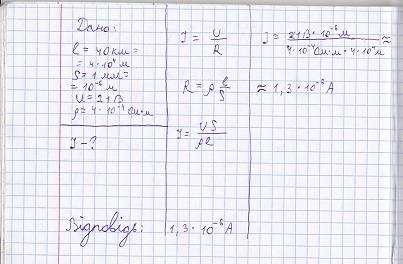 Дано:
l = 40 км =
= 4·10⁴ м
S = 1 мм² =
= 10⁻⁶ м
U = 21 В
ρ = 4·10⁻⁴ См·м
I - ?
I = U/R
R = ρ l/S
I = US/ρl
I = 21 В · 10⁻⁶ м / 4·10⁻⁴ См·м · 4·10⁴ м ≈
≈ 1,3·10⁻⁶ А
Відповідь: 1,3·10⁻⁶ А